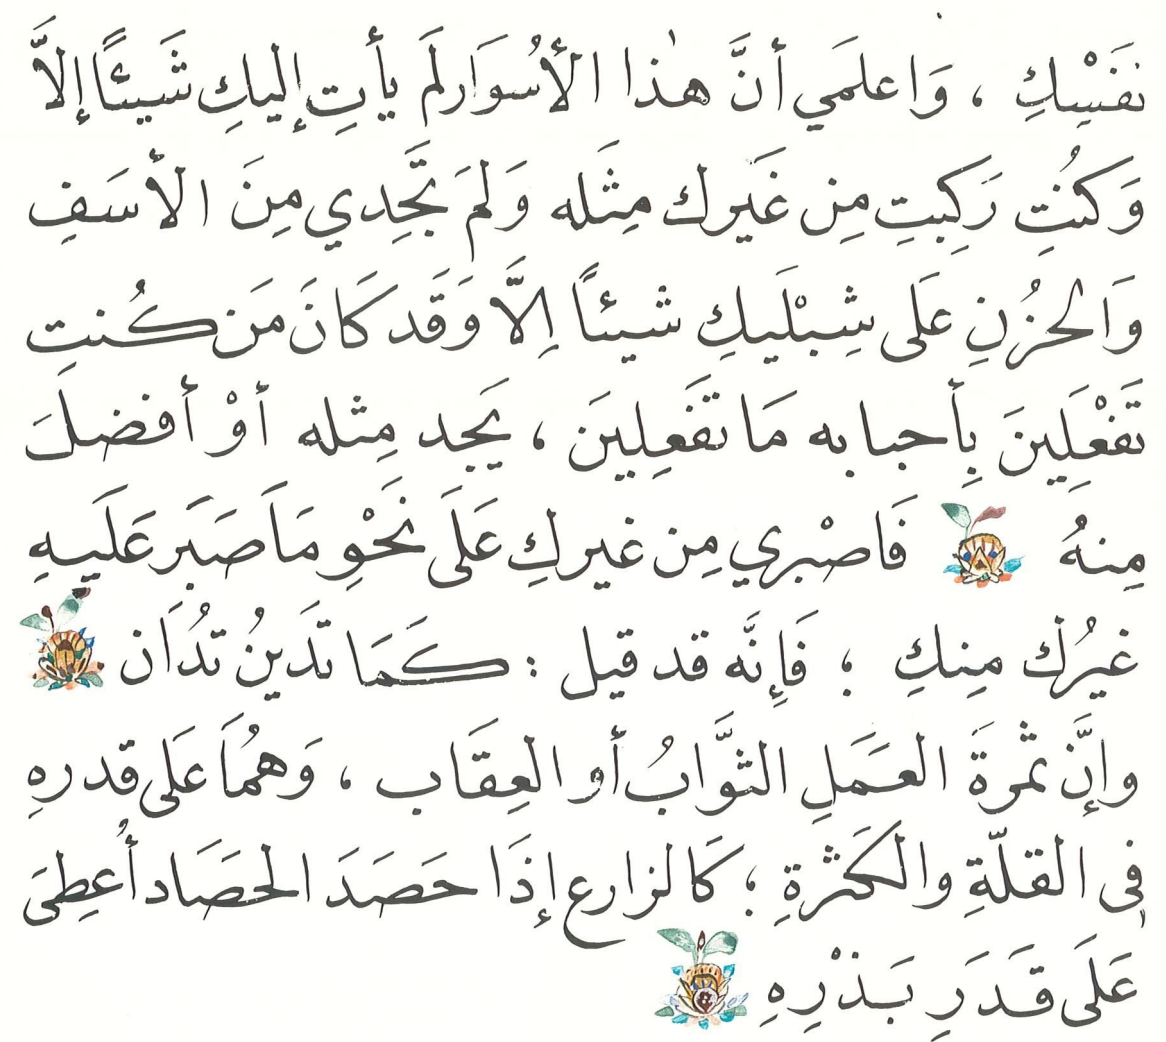 نَفَسِكِ ، وَاعلَمَي أنَّ هذا الأُسوَار لَم يأتِ إليكِ شَيئًا إلاَّ
وَكُنتِ رَكِبتِ مِن غَيرك مِثَله وَلمَ تَّجِدي مِنَ الأسَفِ
وَالحُزُنِ عَلى شِبْلَيكِ شيئاً اِلَّا وَقَد كَانَ مَن كُنتِ
تَفْعَلِينَ بِأحبابه مَا تَفَعِلِينَ ، يَجد مِثله أوْ أفضلَ
مِنهُ فَاصْبري مِن غيركِ عَلَى نَحْوِ مَا صَبَر عَلَيهِ
غيرُك مِنكِ ؛ فَإِنَّه قد قيل : كَمَا تَدينُ تُدَان
وإنَّ ثمرةَ العَمَلِ الثَّوابُ أو العِقَاب ، وَهمُاَ عَلى قدرهِ
فى القلّةِ والكَثرةِ ؛ كَالزارع إذَا حَصَدَ الحَصَاد أُعطِىَ
عَلَى قَدَرِ بَذْرِهِ